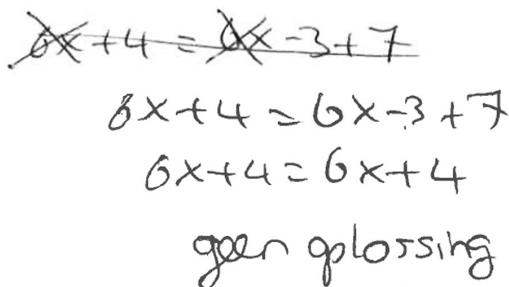 6x+4 = 6x-3+7
6x+4 = 6x-3+7
6x+4 = 6x+4
geen oplossing